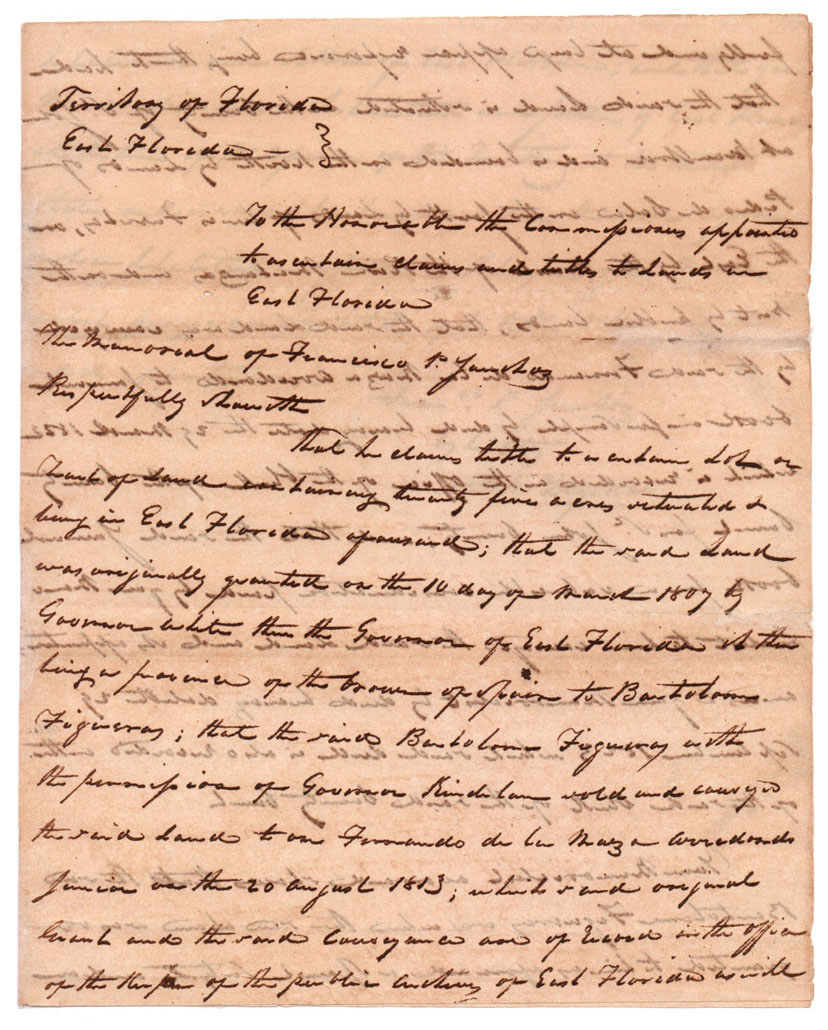 Territory of Florida
East Florida — }
To the Honorable the Commissioners appointed
to ascertain claims and titles to Lands in
East Florida
The Memorial of Francisco P. Sanchez
Respectfully sheweth
That he claims title to a certain Lot or
Tract of Land containing twenty five acres situated &
being in East Florida aforesaid; that the said Land
was originally granted on the 10 day of March 1807 by
Governor White then the Governor of East Florida it then
being a province of the Crown of Spain to Bartolome
Figueras; that the said Bartolome Figueras with
the permission of Governor Kindelan sold and conveyed
the said Land to one Fernando de la Maza Arredondo
Junior on the 20 August 1813; which said original
Grant and the said Conveyance are of Record in the office
of the Keeper of the public Archives of East Florida as will